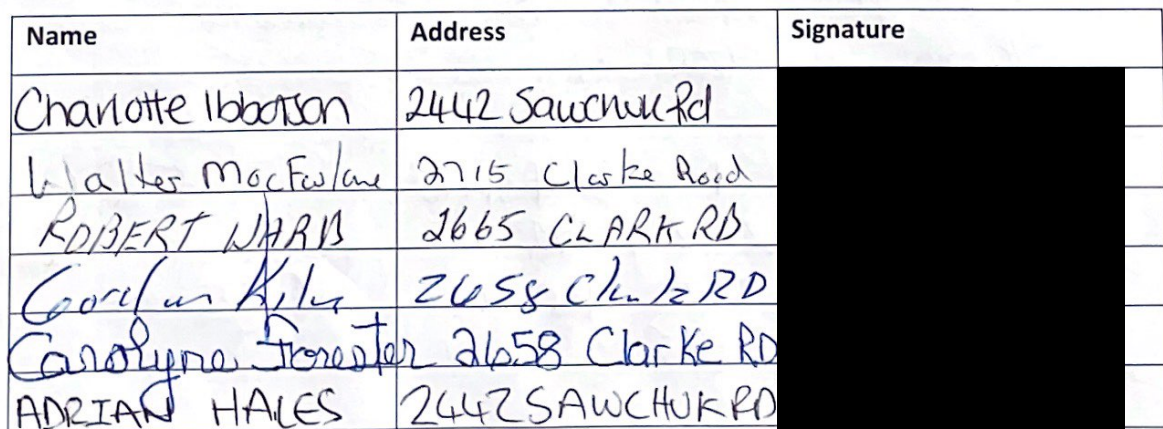 Name Address Signature
Charlotte Ibbotson 2442 Sawchuk Rd
Walter MacFarlane 2715 Clarke Road
ROBERT WARD 2665 CLARK RD
Gordon 2658 Clarke RD
Carolyne Forester 2658 Clarke RD
ADRIAN HALES 2442 SAWCHUK RD